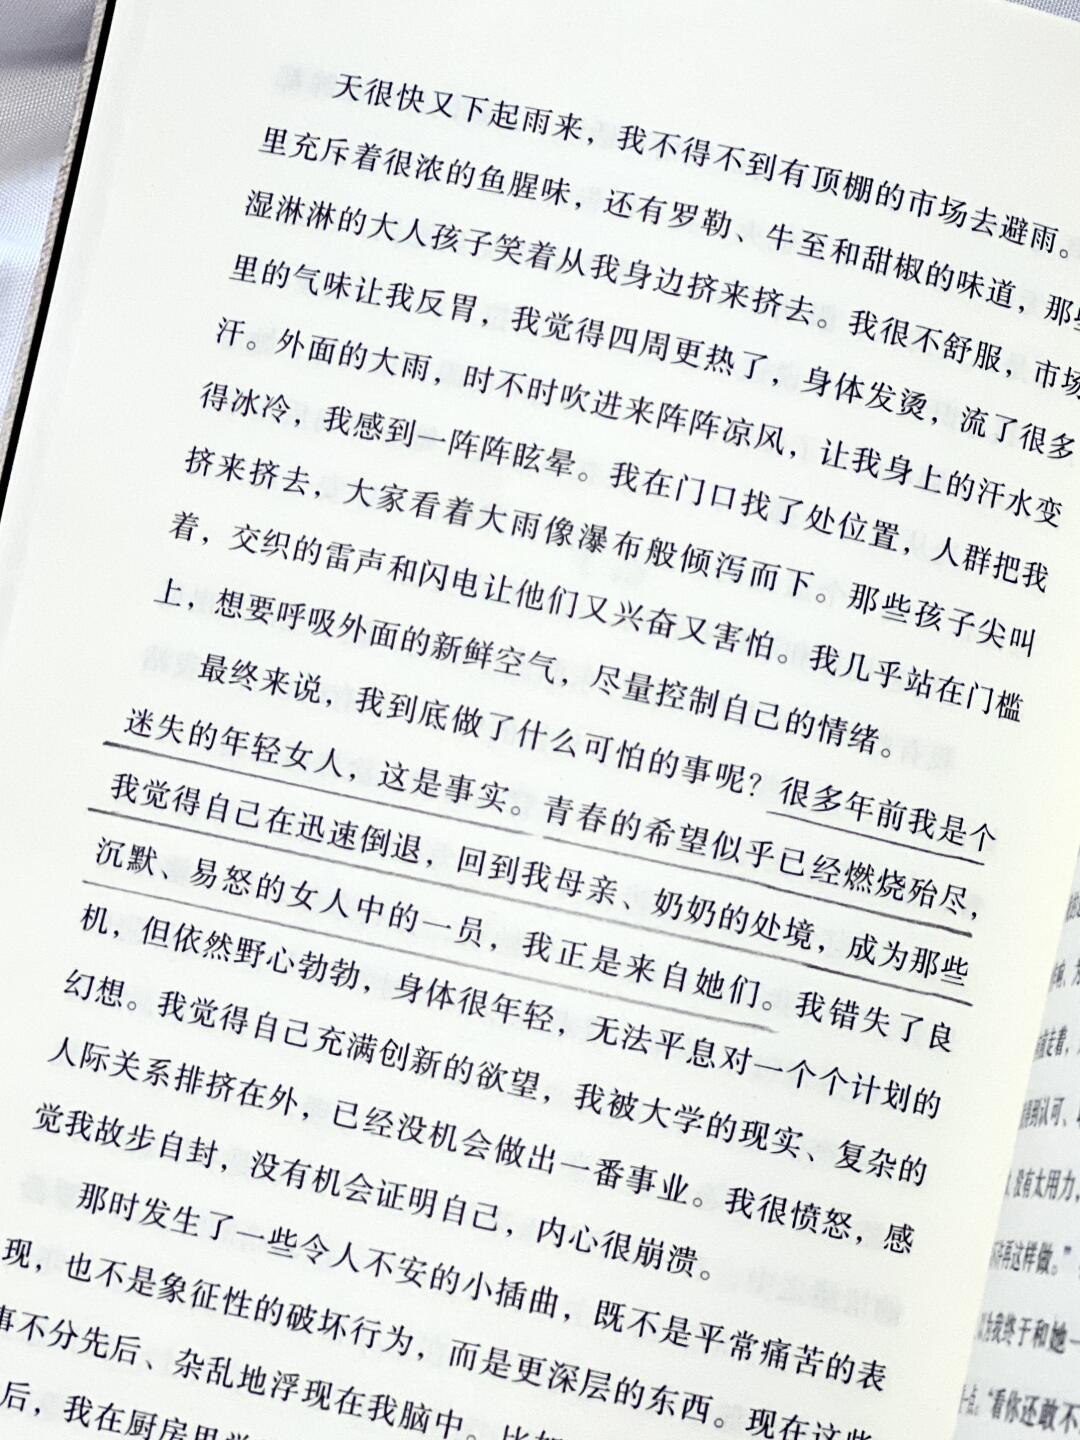 天很快又下起雨来，我不得不到有顶棚的市场去避雨。
里充斥着很浓的鱼腥味，还有罗勒、牛至和甜椒的味道，那些
湿淋淋的大人孩子笑着从我身边挤来挤去。我很不舒服，市场
里的气味让我反胃，我觉得四周更热了，身体发烫，流了很多
汗。外面的大雨，时不时吹进来阵阵凉风，让我身上的汗水变
得冰冷，我感到一阵阵眩晕。我在门口找了处位置，人群把我
挤来挤去，大家看着大雨像瀑布般倾泻而下。那些孩子尖叫
着，交织的雷声和闪电让他们又兴奋又害怕。我几乎站在门槛
上，想要呼吸外面的新鲜空气，尽量控制自己的情绪。
最终来说，我到底做了什么可怕的事呢？很多年前我是个
迷失的年轻女人，这是事实。青春的希望似乎已经燃烧殆尽，
我觉得自己在迅速倒退，回到我母亲、奶奶的处境，成为那些
沉默、易怒的女人中的一员，我正是来自她们。我错失了良
机，但依然野心勃勃，身体很年轻，无法平息对一个个计划的
幻想。我觉得自己充满创新的欲望，我被大学的现实、复杂的
人际关系排挤在外，已经没机会做出一番事业。我很愤怒，感
觉我故步自封，没有机会证明自己，内心很崩溃。
那时发生了一些令人不安的小插曲，既不是平常痛苦的表
现，也不是象征性的破坏行为，而是更深层的东西。现在这些
事不分先后、杂乱地浮现在我脑中。比如
后，我在厨房里
得到认可、
没有太用力，
再这样做。”
以为我终于和她一
一点。“看你还敢不